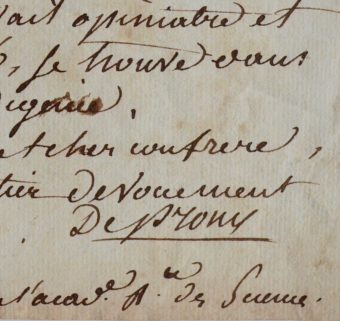 vail opiniatre et
, se trouve dans
et cher confrere,
tier devouement
De Prony
l'acad. R.le des Scienc.